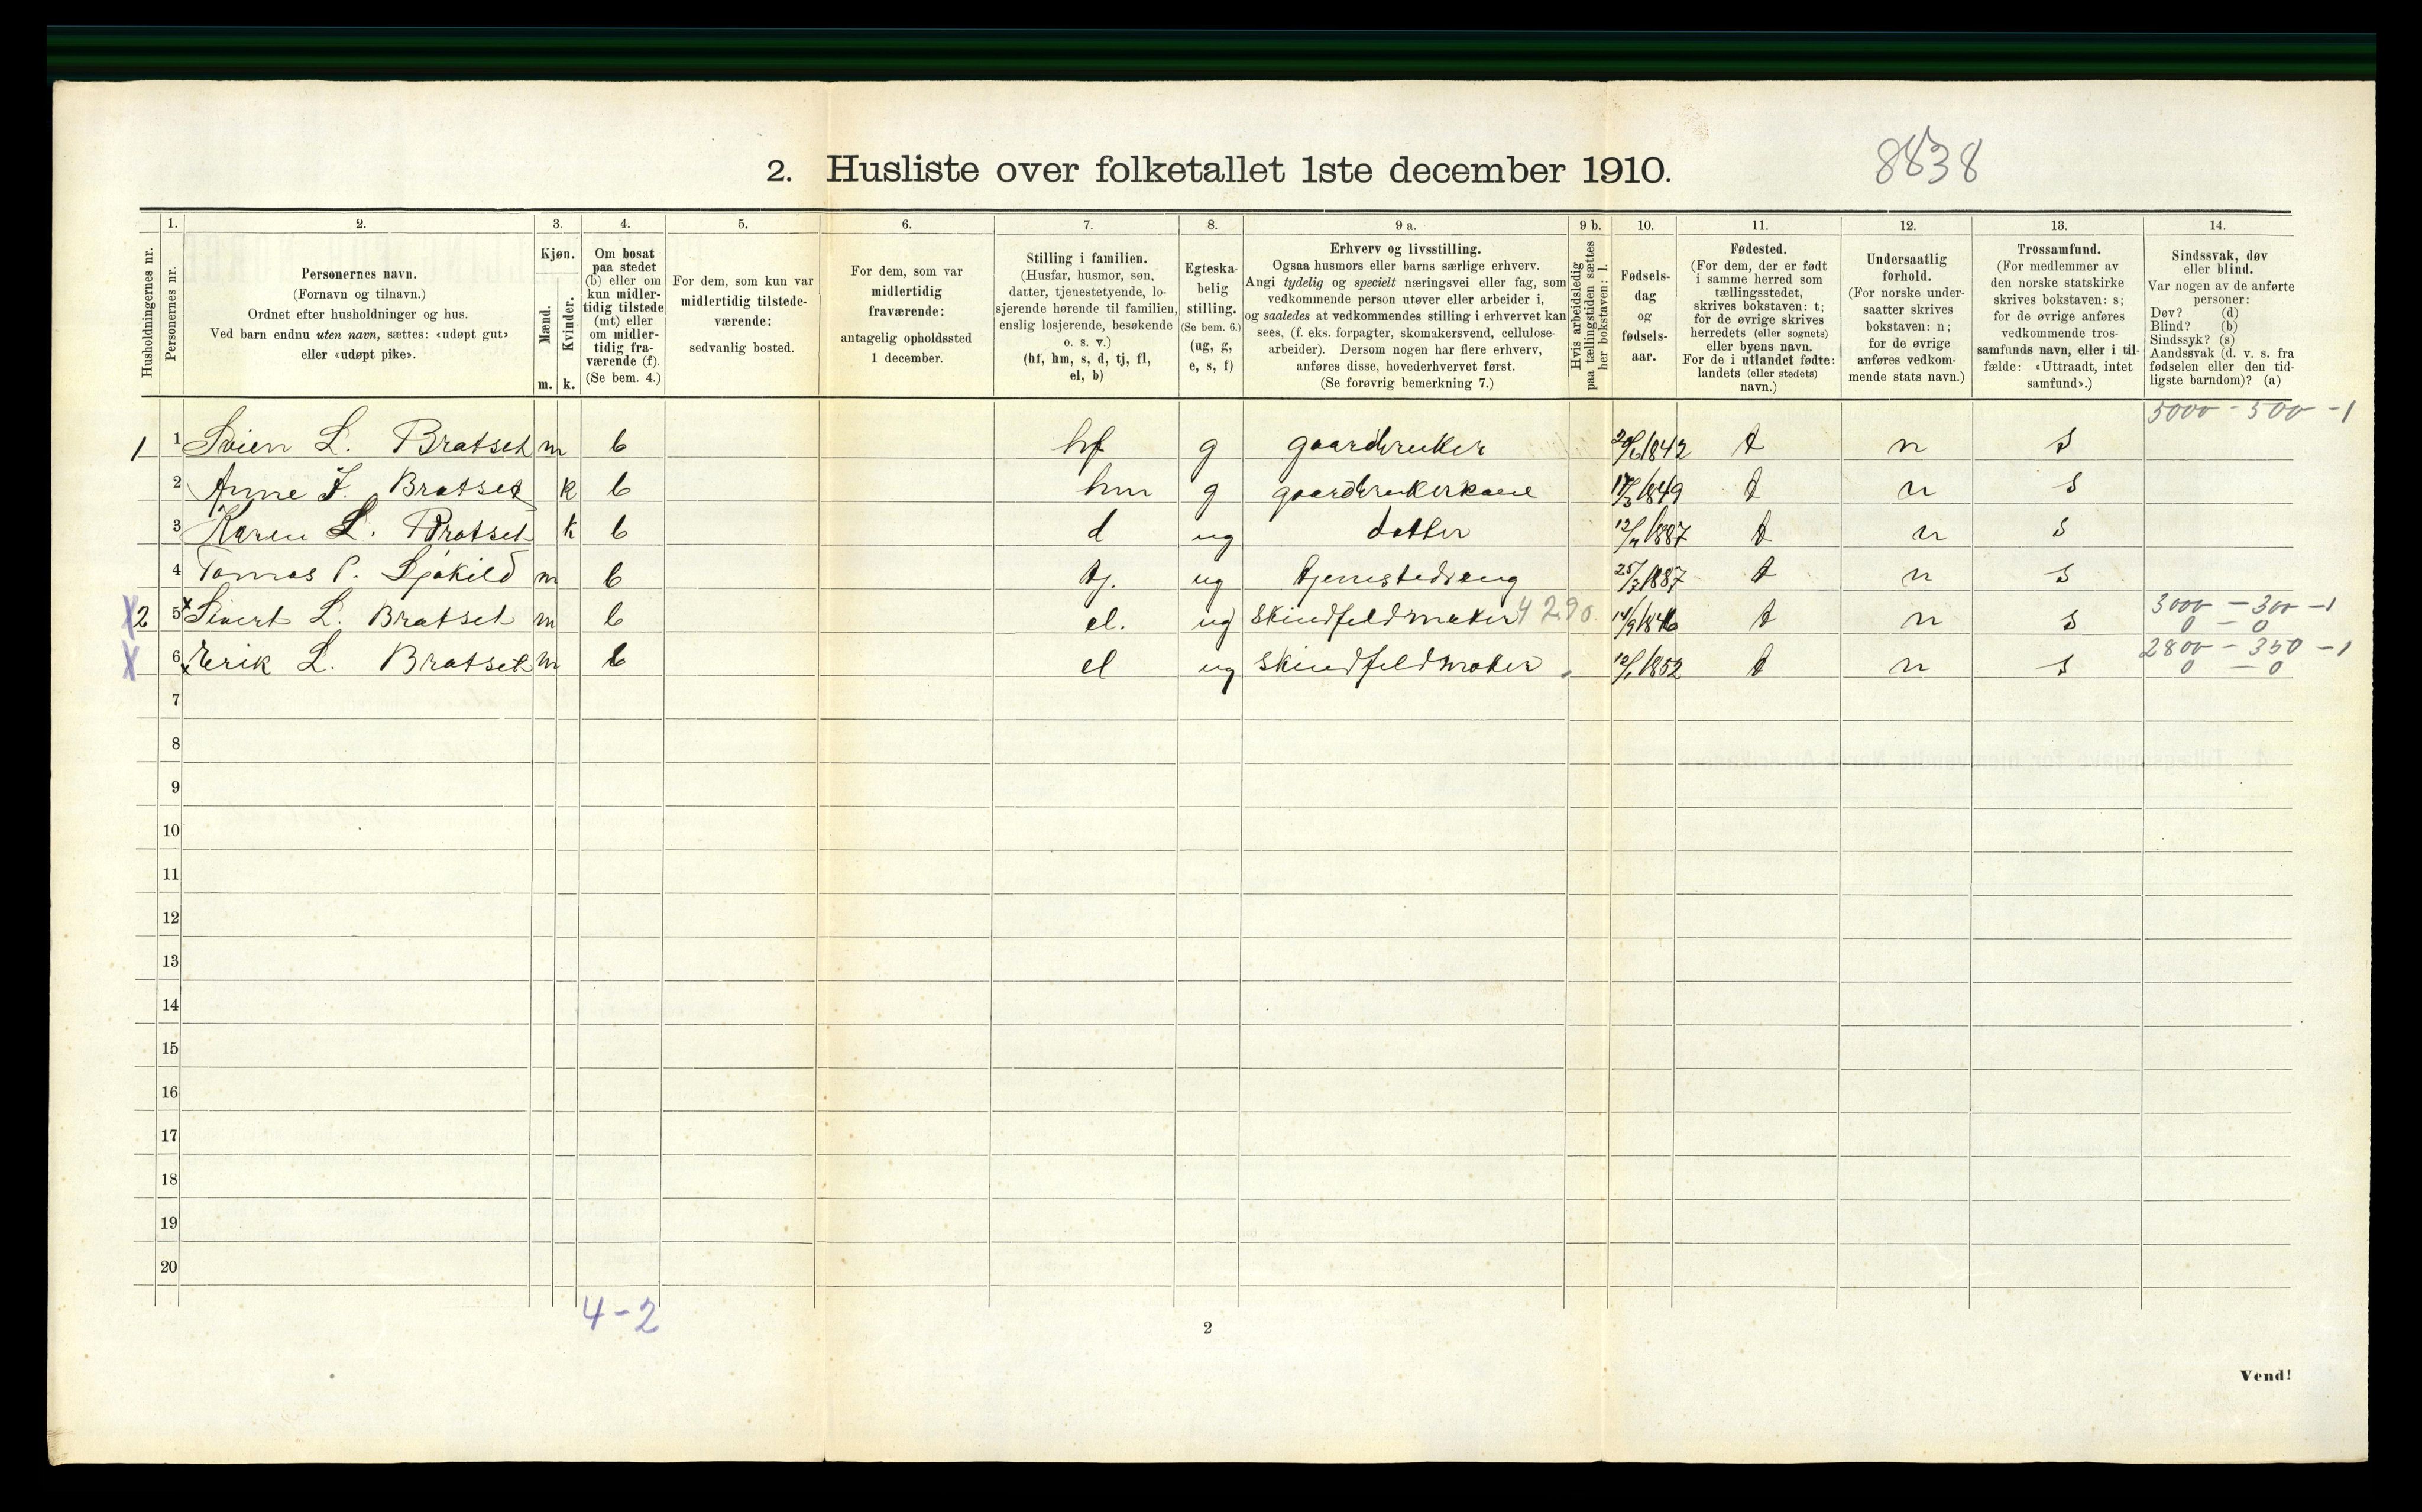 2. Husliste over folketallet 1ste december 1910.
8838
Husholdningernes nr.
1.
Personernes nr.
2.
Personernes navn.
(Fornavn og tilnavn.)
Ordnet efter husholdninger og hus.
Ved barn endnu uten navn, sættes: «udøpt gut»
eller «udøpt pike».
3.
Kjøn.
Mænd.
Kvinder.
m. k.
4.
Om bosat
paa stedet
(b) eller om
kun midler-
tidig tilstede
(mt) eller
om midler-
tidig fra-
værende (f).
(Se bem. 4.)
5.
For dem, som kun var
midlertidig tilstede-
værende:
sedvanlig bosted.
6.
For dem, som var
midlertidig
fraværende:
antagelig opholdssted
1 december.
7.
Stilling i familien.
(Husfar, husmor, søn,
datter, tjenestetyende, lo-
sjerende hørende til familien,
enslig losjerende, besøkende
o. s. v.)
(hf, hm, s, d, tj, fl,
el, b)
8.
Egteska-
belig
stilling.
(Se bem. 6.)
(ug, g,
e, s, f)
9 a.
Erhverv og livsstilling.
Ogsaa husmors eller barns særlige erhverv.
Angi tydelig og specielt næringsvei eller fag, som
vedkommende person utøver eller arbeider i,
og saaledes at vedkommendes stilling i erhvervet kan
sees, (f. eks. forpagter, skomakersvend, cellulose-
arbeider). Dersom nogen har flere erhverv,
anføres disse, hovederhvervet først.
(Se forøvrig bemerkning 7.)
9 b.
Hvis arbeidsledig
paa tællingstiden sættes
her bokstaven: l.
10.
Fødsels-
dag
og
fødsels-
aar.
11.
Fødested.
(For dem, der er født
i samme herred som
tællingsstedet,
skrives bokstaven: t;
for de øvrige skrives
herredets (eller sognets)
eller byens navn.
For de i utlandet fødte:
landets (eller stedets)
navn.)
12.
Undersaatlig
forhold.
(For norske under-
saatter skrives
bokstaven: n;
for de øvrige
anføres vedkom-
mende stats navn.)
13.
Trossamfund.
(For medlemmer av
den norske statskirke
skrives bokstaven: s;
for de øvrige anføres
vedkommende tros-
samfunds navn, eller i til-
fælde: «Uttraadt, intet
samfund».)
14.
Sindssvak, døv
eller blind.
Var nogen av de anførte
personer:
Døv? (d)
Blind? (b)
Sindssyk? (s)
Aandssvak (d. v. s. fra
fødselen eller den tid-
ligste barndom)? (a)
5000 - 500 - 1
1 1 Svien L. Bratset m b hf g gaardbruker 1842 t n s
2 Anne J. Bratset k b hm g gaardbrukerkone 17/3 1849 t n s
3 Karen L. Bratset k b d ug datter 1887 t n s
4 Tomas P. Sjøkild m b tj. ug tjenestedreng 25/3 1887 t n s
3000 - 300 - 1
X 2 5 x Sivert L. Bratset m b el. ug skindfeldmaker 4290 14/9 1846 t n s 0 - 0
2800 - 350 - 1
X 6 x Erik L. Bratset m b el ug skindfeldmaker 12/1 1852 t n s 0 - 0
7
8
9
10
11
12
13
14
15
16
17
18
19
20
4-2
2
Vend!